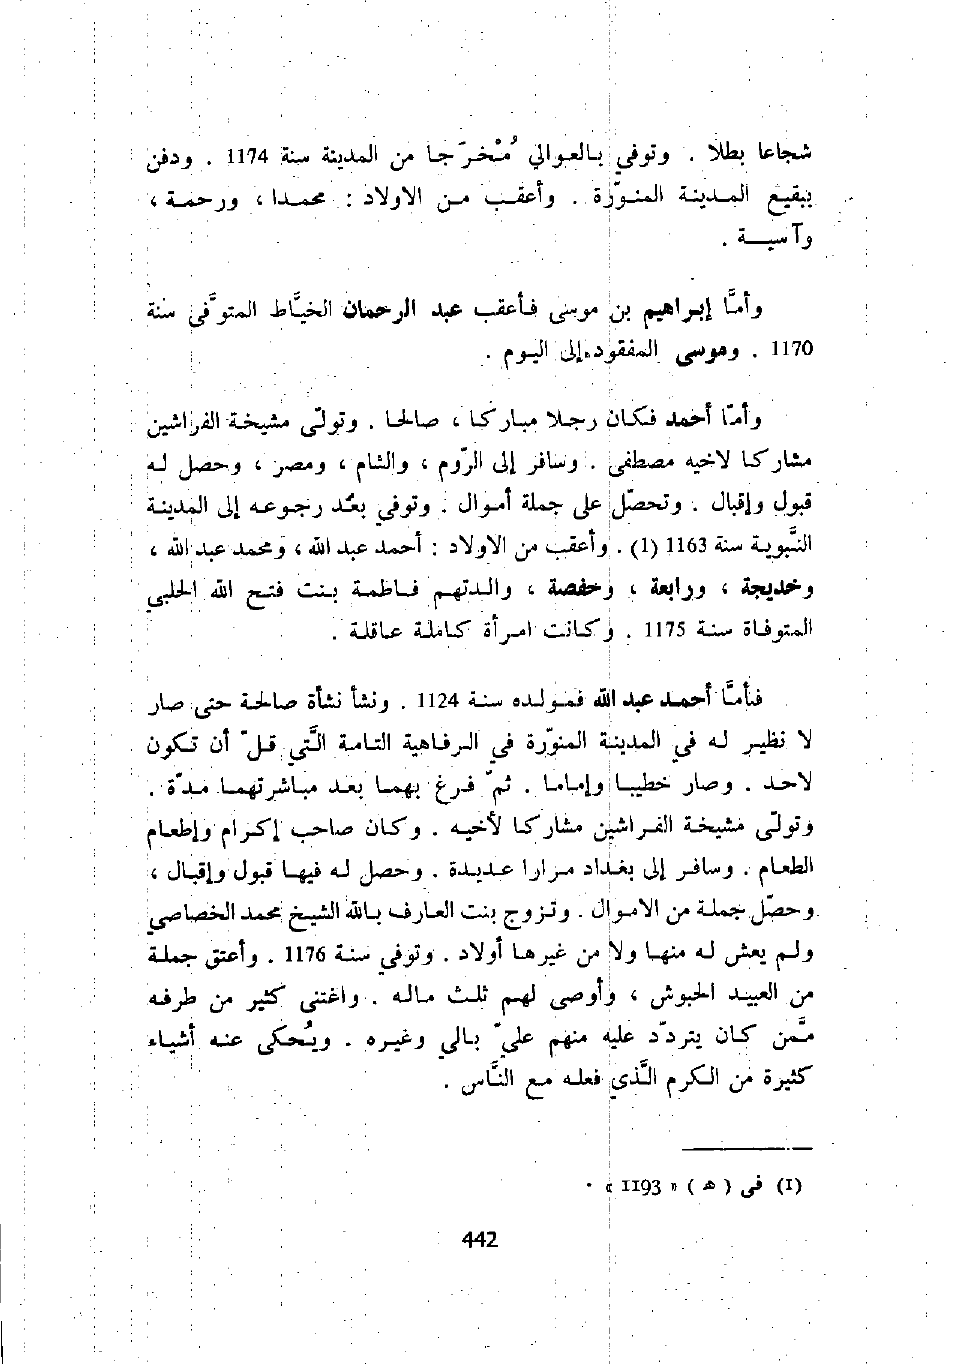 شجاعا بطلا . وتوفي بـالعـوالي مُنْخـرَجـا من المدينة سنة 1174 . ودفن
ببقيع المـدينـة المنـوّرة . وأعقـب مـن الاولاد : محمـدا ، ورحمـة ،
وآسيـــة .
وأمَّا إبـراهيم بن موسى فـأعقب عبد الرحمان الخيَّاط المتوَّفى سنة
1170 . وموسى المفقود إلى اليوم .
وأمّا أحمد فكان رجلا مباركا ، صالحا . وتولّى مشيخة الفراشين
مشاركا لاخيه مصطفى . وسافر إلى الرّوم ، والشام ، ومصر ، وحصل له
قبول وإقبال . وتحصّل على جملة أموال . وتوفي بعْد رجوعه إلى المدينة
النَّبوية سنة 1163 (1) . وأعقب من الاولاد : أحمد عبد الله ، ومحمد عبد الله ،
وخديجة ، ورابعة ، وحفصة ، والدتهم فاطمة بنت فتح الله الحلبي
المتوفاة سنة 1175 . وكانت امرأة كاملة عاقلة .
فأمَّا أحمد عبد الله فمولده سنة 1124 . ونشأ نشأة صالحة حتى صار
لا نظير له في المدينة المنوّرة في الرفاهية التامة الَّتي قلّ أن تكون
لاحد . وصار خطيبا وإماما . ثمّ فرغ بهما بعد مباشرتهما مدّة .
وتولّى مشيخة الفراشين مشاركا لأخيه . وكان صاحب إكرام وإطعام
الطعام . وسافر إلى بغداد مرارا عديدة . وحصل له فيها قبول وإقبال ،
وحصّل جملة من الاموال . وتزوج بنت العارف بالله الشيخ محمد الخصاصي
ولم يعش له منها ولا من غيرها أولاد . وتوفي سنة 1176 . وأعتق جملة
من العبيد الحبوش ، وأوصى لهم ثلث ماله . واغتنى كثير من طرفه
ممَّن كان يتردّد عليه منهم عليّ بالي وغيره . ويُحكى عنه أشياء
كثيرة من الكرم الَّذي فعله مع النَّاس .
(1) فى ( ھ ) « 1193 » .
442